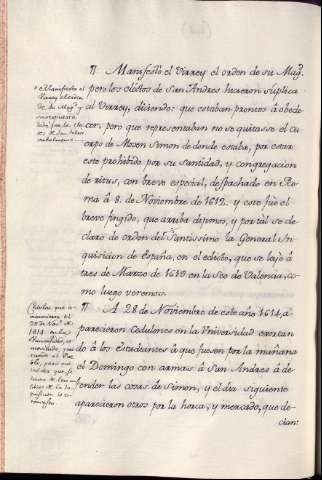 ¶ Manifestò el Virrey el orden de su Mag.ᵈ
pero los eletos de San Andres hicieron suplica
al Virrey, diziendo: que estaban prontos à obede-
cer, pero que representaban no se quitasse el Cu-
erpo de Mosen Simon de donde estaba, por estar
esto prohibido por su Santidad, y congregacion
de ritus, con breve especial, despachado en Ro-
ma à 8. de Noviembre de 1612. y este fuè el
breve fingido, que arriba diximos, y por tal se de-
claro de orden del Santissimo la General In-
quisicion de España, en el edicto, que se leyò à
tres de Marzo de 1619 en la Seo de Valencia, co-
mo luego veremos.
¶ A 28 de Noviembre de este año 1614, a-
parecieron Cedulones en la Universidad exortan-
do à los estudiantes à que fuesen por la mañana
el Domingo con armas à San Andres à de-
fender las cosas de Simon, y el dia siguiente
aparecieron otros por la lonja, y mercado, que de-
cian:
Manifiesta el
Virrey el orden
de su Mag.ᵈ y
su respuesta
28 de Nov.ᵉ de
1614 en la